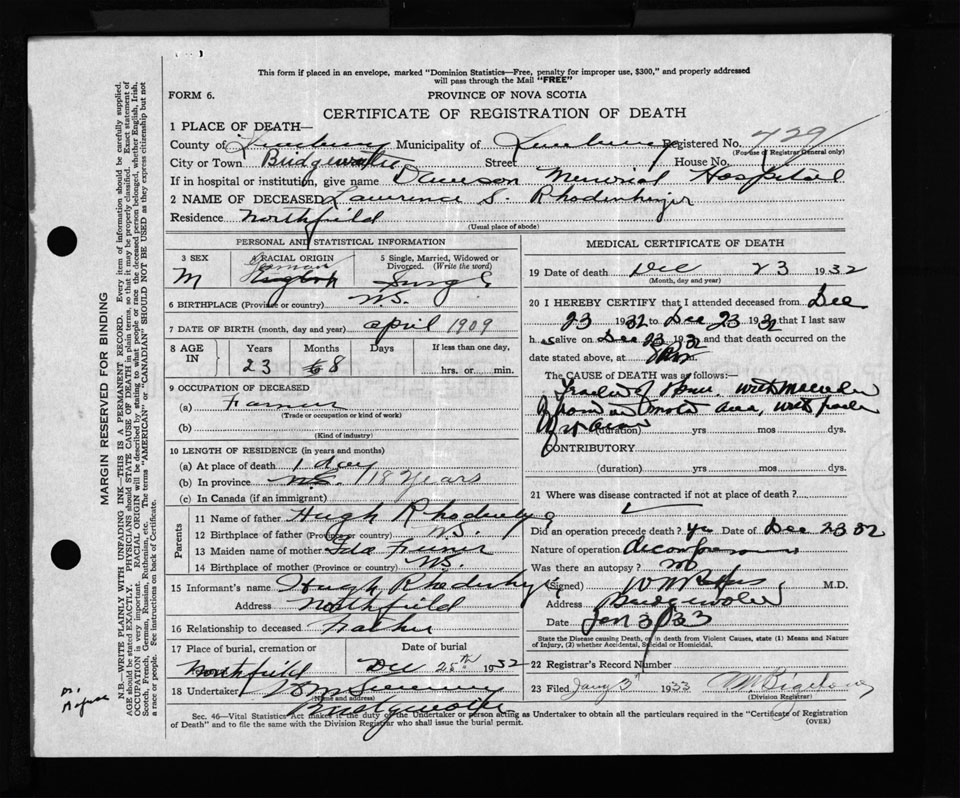 This form if placed in an envelope, marked "Dominion Statistics—Free, penalty for improper use, $300," and properly addressed
will pass through the Mail "FREE"
FORM 6.
PROVINCE OF NOVA SCOTIA
CERTIFICATE OF REGISTRATION OF DEATH
1 PLACE OF DEATH—
County of Lunenburg Municipality of Lunenburg Registered No. 729
(For use of Registrar General only)
City or Town Bridgewater Street House No.
If in hospital or institution, give name Dawson Memorial Hospital
2 NAME OF DECEASED Lawrence S. Rhodenhizer
Residence Northfield
(Usual place of abode)
PERSONAL AND STATISTICAL INFORMATION
3 SEX
M
4 RACIAL ORIGIN
German
English
5 Single, Married, Widowed or
Divorced. (Write the word)
Single
6 BIRTHPLACE (Province or country) N.S.
7 DATE OF BIRTH (month, day and year) April 1909
8 AGE IN Years Months Days If less than one day,
23 8 hrs. or min.
9 OCCUPATION OF DECEASED
(a) Farmer
(Trade or occupation or kind of work)
(b)
(Kind of industry)
10 LENGTH OF RESIDENCE (in years and months)
(a) At place of death 1 day
(b) In province N.S. 18 Years
(c) In Canada (if an immigrant)
Parents
11 Name of father Hugh Rhodenhizer
12 Birthplace of father (Province or country) N.S.
13 Maiden name of mother Ida
14 Birthplace of mother (Province or country) N.S.
15 Informant's name Hugh Rhodenhizer
Address Northfield
16 Relationship to deceased Father
17 Place of burial, cremation or Date of burial
Northfield Dec 25th 1932
18 Undertaker
(Name and address)
Bridgewater
MEDICAL CERTIFICATE OF DEATH
19 Date of death Dec 23 1932
(Month, day and year)
20 I HEREBY CERTIFY that I attended deceased from Dec
23 1932 to Dec 23 1932 that I last saw
h alive on Dec 23 1932 and that death occurred on the
date stated above, at
The CAUSE OF DEATH was as follows:—
of with
motor area, with
(duration) yrs mos dys.
CONTRIBUTORY
(duration) yrs mos dys.
21 Where was disease contracted if not at place of death?
Did an operation precede death? Yes Date of Dec 23 32
Nature of operation decompression
Was there an autopsy? no
(Signed) M.D.
Address Bridgewater
Date Jan 3 / 33
State the Disease causing Death, or in death from Violent Causes, state (1) Means and Nature
of Injury, (2) whether Accidental, Suicidal or Homicidal.
22 Registrar's Record Number
23 Filed Jany 3rd 1933
(Division Registrar)
Sec. 46—Vital Statistics Act makes it the duty of the Undertaker or person acting as Undertaker to obtain all the particulars required in the "Certificate of Registration
of Death" and to file the same with the Division Registrar who shall issue the burial permit.
(OVER)
MARGIN RESERVED FOR BINDING
N.B.—WRITE PLAINLY WITH UNFADING INK—THIS IS A PERMANENT RECORD. Every item of information should be carefully supplied.
AGE should be stated EXACTLY. PHYSICIANS should STATE CAUSE OF DEATH in plain terms, so that it may be properly classified. Exact statement of
OCCUPATION is very important. RACIAL ORIGIN will be described by stating to what people or race the deceased person belonged, whether English, Irish,
Scotch, French, German, Russian, Ruthenian, etc. The terms "AMERICAN" or "CANADIAN" SHOULD NOT BE USED as they express citizenship but not
a race or people. See instructions on back of Certificate.